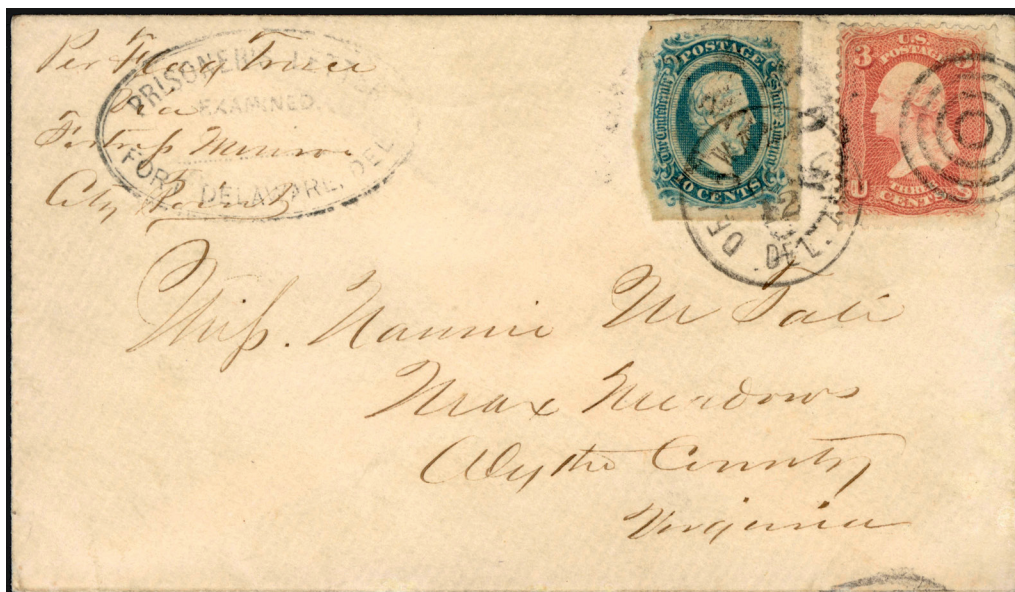 Per Flag Truce
Via
Fortress Monroe
City Point
PRISONER'S LETTER
EXAMINED.
FORT DELAWARE, DEL.
POSTAGE
The Confederate States of America
10 CENTS
U.S.
POSTAGE
3 3
U S
THREE
CENTS
DEL.
Miss. Nannie M Tate
Max Meadows
Wythe County
Virginia